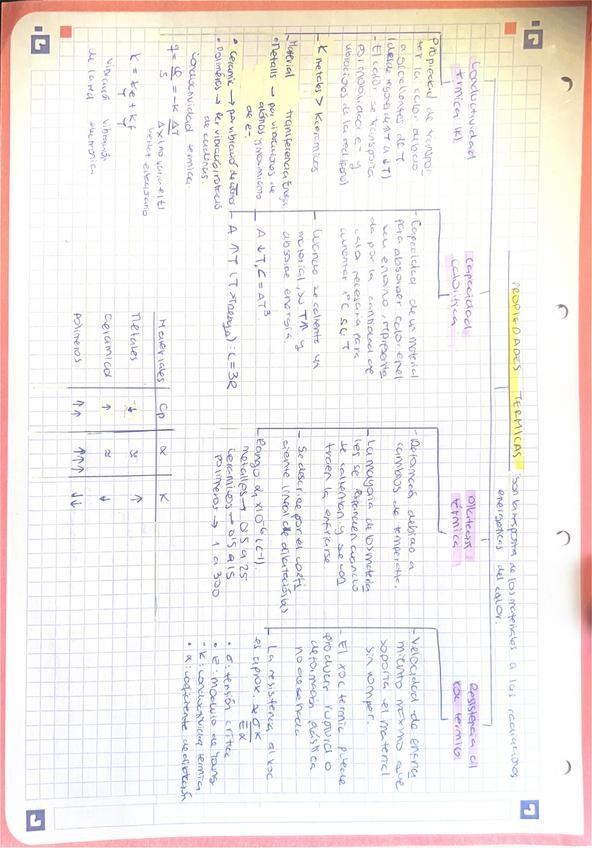 PROPIEDADES TERMICAS son la respuesta de los materiales a las radiaciones
energéticas del calor.
Conductividad
térmica (K)
Propiedad de transpor
tar la calor debido
a gradientes de T
(desde región de ↑T a ↓T)
- El calor se transporta
por movilidad e⁻ y
vibraciones de la red (fonón)
- K metales > K cerámicos
Material transferencia Energ
• Metales → por vibraciones de
átomos y movimiento
de e⁻.
• Ceramic → por vibraciones de átomos
• Polímeros → por vibración/rotación
de cadenas
Conductividad térmica
q = Q/S = -K ΔT/Δx
K = Ke + Kf
vibración vibración
de la red electrónica
Capacidad
calorífica
- Capacidad de un material
para absorber calor en el
seu entorno, representa
da por la cantidad de
calor necesaria para
aumentar 1°C su T
- Cuando se calienta un
material, su T↑ y
absorbe energía.
- A ↓T, C = AT³
- A ↑T (T > Tdebye): C = 3R
Materiales Cp α K
Metales ↓ ≈ ↑
Cerámicos ↑ ≈ ↓
Polímeros ↑↑ ↑↑↑ ↓↓
Dilatación
térmica
- Deformación debido a
cambios de temperatura.
- La mayoría de los materia
les se expanden cuando
se calientan y se con
traen al enfriarse
- Se describe por el coefi
ciente lineal de dilatación (α)
Rango α x10⁻⁶ (C⁻¹).
metales → 0'5 a 25
cerámicos → 0'5 a 15
polímeros → 1 a 300
Resistencia al
xoc térmico
- Velocidad de enfria
miento máximo que
soporta el material
sin romper.
- El xoc térmic puede
producir ruptura o
deformación plástica
no deseada
- La resistencia al xoc
es aprox. ≈ σK/Eα
• σ: tensión crítica
• E: módulo de Young
• K: conductividad térmica
• α: coeficiente de dilatación